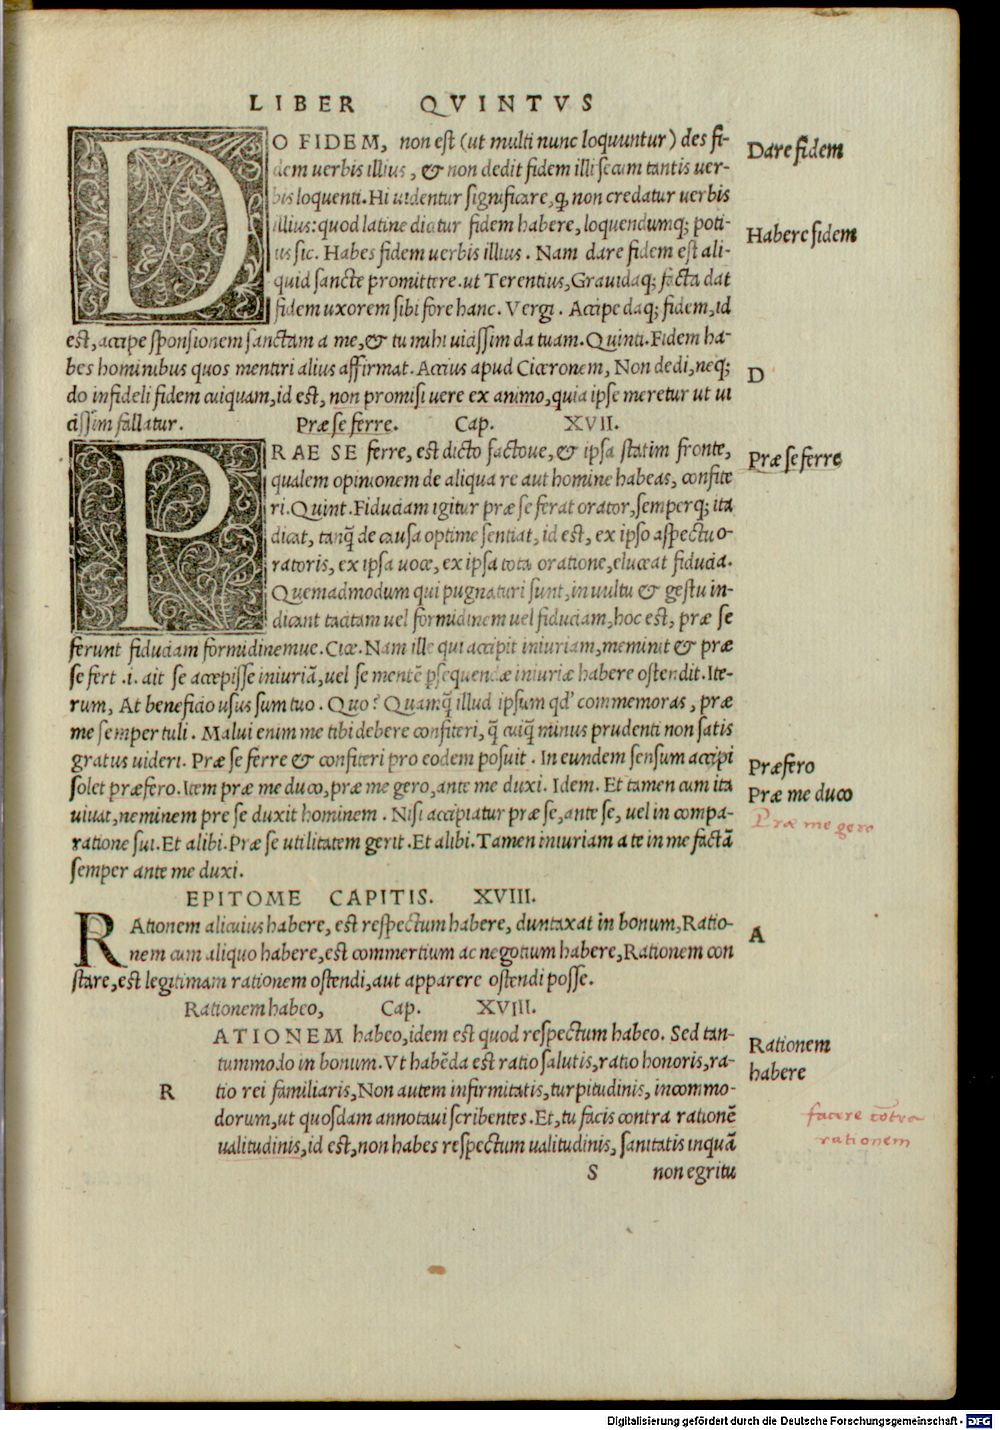 LIBER QVINTVS
DO FIDEM, non est (ut multi nunc loquuntur) des fi-
dem uerbis illius, & non dedit fidem illi secum tantis uer-
bis loquenti. Hi uidentur significare, q̃, non credatur uerbis
illius: quod latine dicitur fidem habere, loquendumq; poti-
us sic. Habes fidem uerbis illius. Nam dare fidem est ali-
quid sancte promittere. ut Terentius, Grauidaq; facta dat
fidem uxorem sibi fore hanc. Vergi. Accipe daq; fidem, id
est, accipe sponsionem sanctam a me, & tu mihi uicissim da tuam. Quinti. Fidem ha-
bes hominibus quos mentiri alius affirmat. Accius apud Ciceronem, Non dedi, neq;
do infideli fidem cuiquam, id est, non promisi uere ex animo, quia ipse meretur ut ui
cissim fallatur. Præ se ferre. Cap. XVII.
PRAE SE ferre, est dicto factoue, & ipsa statim fronte,
qualem opinionem de aliqua re aut homine habeas, confite
ri. Quint. Fiduciam igitur præ se ferat orator, semperq; ita
dicat, tanq̃ de causa optime sentiat, id est, ex ipso aspectu o-
ratoris, ex ipsa uoce, ex ipsa tota oratione, eluceat fiducia.
Quemadmodum qui pugnaturi sunt, in uultu & gestu in-
dicant tacitam uel formidinem uel fiduciam, hoc est, præ se
ferunt fiduciam formidinemue. Cice. Nam ille qui accipit iniuriam, meminit & præ
se fert .i. ait se accepisse iniuriã, uel se mentẽ ꝑsequendæ iniuriæ habere ostendit. Ite-
rum, At beneficio usus sum tuo. Quo? Quamq̃ illud ipsum qd' commemoras, præ
me semper tuli. Malui enim me tibi debere confiteri, q̃ cuiq̃ minus prudenti non satis
gratus uideri. Præ se ferre & confiteri pro eodem posuit. In eundem sensum accipi
solet præfero. Item præ me duco, præ me gero, ante me duxi. Idem. Et tamen cum ita
uiuat, neminem pre se duxit hominem. Nisi accipiatur præ se, ante se, uel in compa-
ratione sui. Et alibi. Præ se utilitatem gerit. Et alibi. Tamen iniuriam a te in me factã
semper ante me duxi.
EPITOME CAPITIS. XVIII.
RAtionem alicuius habere, est respectum habere, duntaxat in bonum, Ratio-
nem cum aliquo habere, est commertium ac negotium habere, Rationem con
stare, est legitimam rationem ostendi, aut apparere ostendi posse.
Rationem habeo, Cap. XVIII.
R ATIONEM habeo, idem est quod respectum habeo. Sed tan-
tummodo in bonum. Vt habẽda est ratio salutis, ratio honoris, ra-
tio rei familiaris, Non autem infirmitatis, turpitudinis, incommo-
dorum, ut quosdam annotaui scribentes. Et, tu facis contra rationẽ
ualitudinis, id est, non habes respectum ualitudinis, sanitatis inquã
S non egritu
Dare fidem
Habere fidem
D
Præ se ferre
Præfero
Præ me duco
Præ me gero
A
Rationem
habere
facere cõtra
rationem
Digitalisierung gefördert durch die Deutsche Forschungsgemeinschaft - DFG